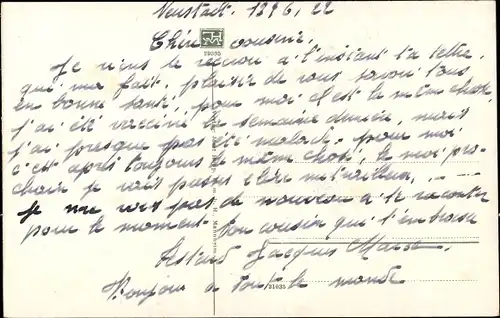 Neustadt. 12 6/22
Chère cousine,
Je viens de recevoir à l'instant ta lettre,
qui ma fait plaisir de vous savoir tous
en bonne santé, pour moi c'est la même chose
j'ai été vacciné la semaine dernière, mais
j'ai presque pas été malade. pour moi
c'est après toujours la même chose, le mois pro-
chain je vais passer élève mitrailleur. -
Je ne vois pas de nouveau à te raconter
pour le moment. Ton cousin qui t'embrasse
Jacques
Bonjour a tout le monde
31035